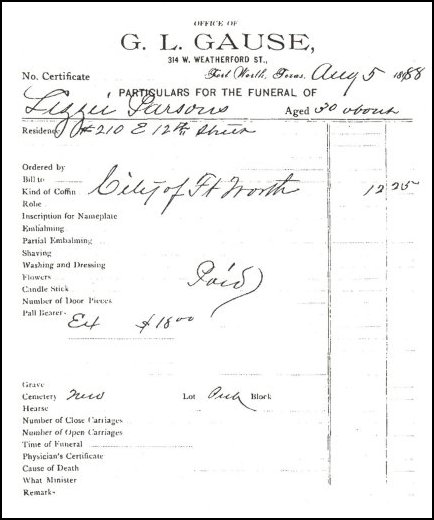 OFFICE OF
G. L. GAUSE,
314 W. WEATHERFORD ST.,
No. Certificate Fort Worth, Texas, Aug 5 1888
PARTICULARS FOR THE FUNERAL OF
Lizzie Parsons Aged 30 about
Residence #210 E 12th Street
Ordered by
Bill to
Kind of Coffin City of Ft Worth 12 25
Robe
Inscription for Nameplate
Embalming
Partial Embalming
Shaving
Washing and Dressing
Flowers Paid
Candle Stick
Number of Door Pieces
Pall Bearer
Ex $18 00
Grave
Cemetery New Lot Block
Hearse
Number of Close Carriages
Number of Open Carriages
Time of Funeral
Physician's Certificate
Cause of Death
What Minister
Remark